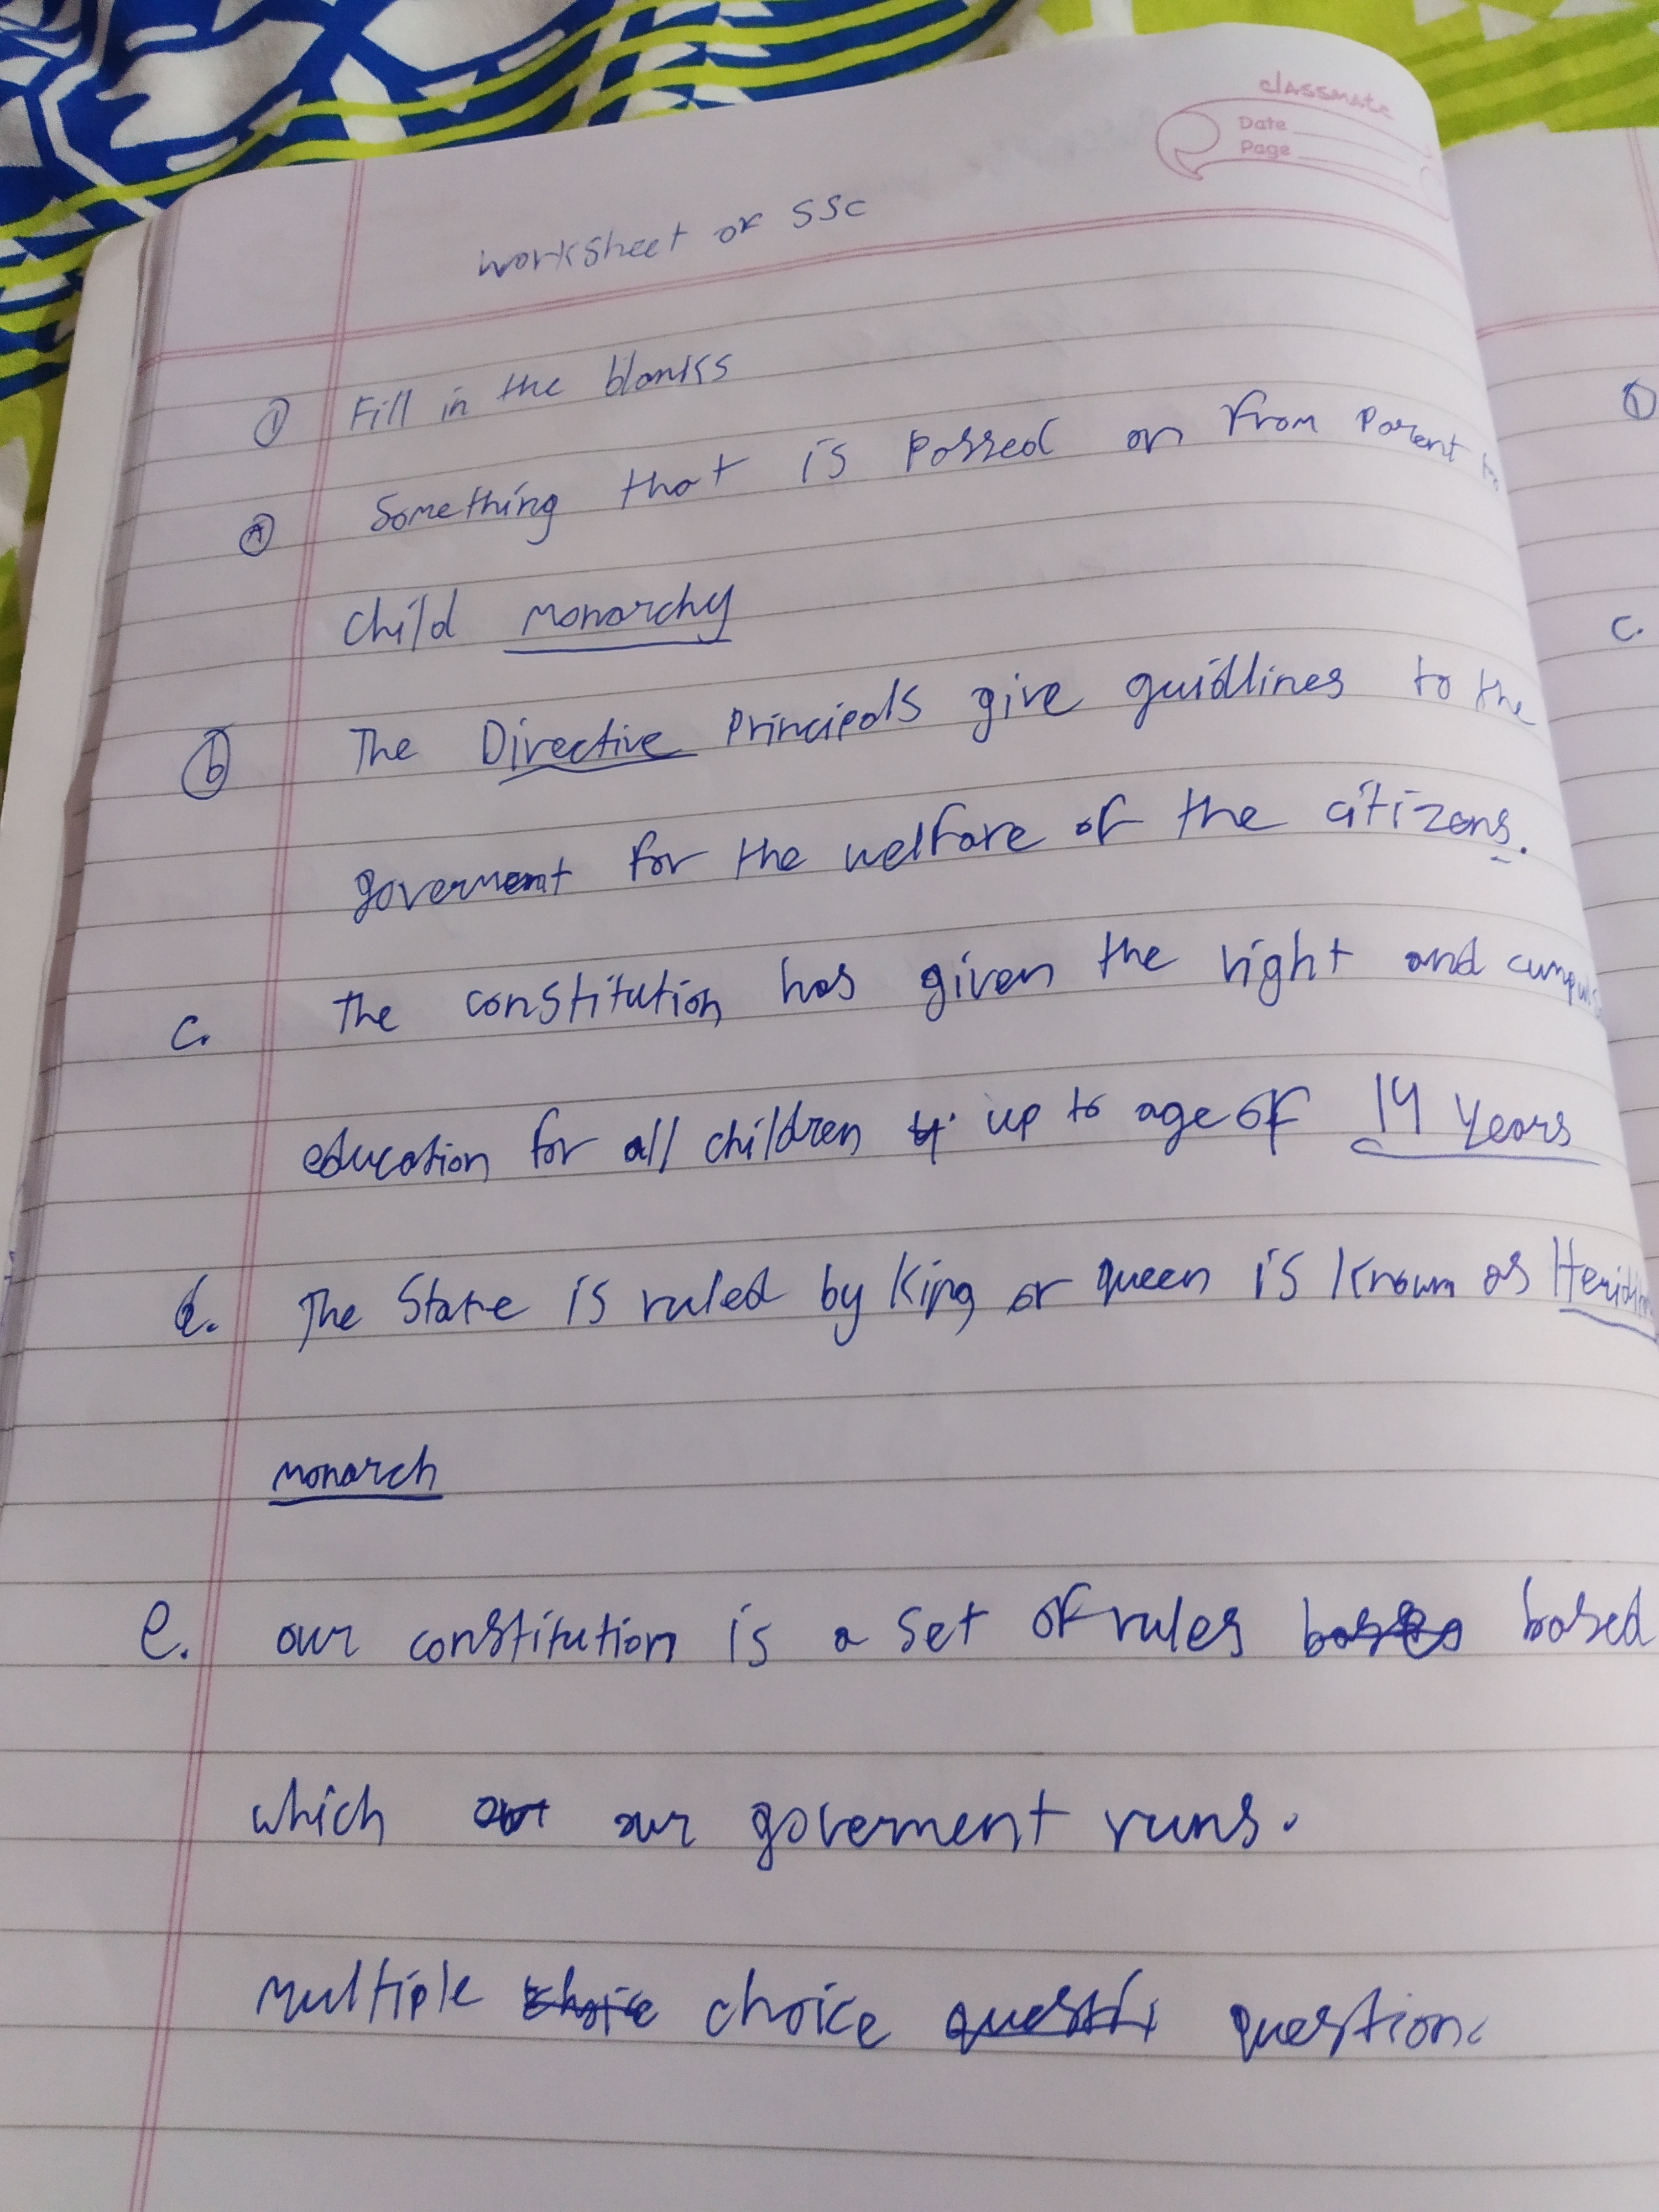 classmate
Date
Page
Worksheet of SSC
① Fill in the blanks
ⓐ Something that is Passed on from Parent to
child monarchy
ⓑ The Directive Principals give guidlines to the
government for the welfare of the citizens.
c. The constitution has given the right and
education for all children up to age of 14 years
d. The State is ruled by King or queen is known as
monarch
e. our constitution is a set of rules based
which our goverment runs.
Multiple choice question
①
c.